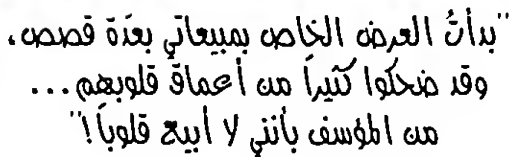 "بدأتُ العرض الخاص بمبيعاتي بعدّة قصص،
وقد ضحكوا كثيراً من أعماق قلوبهم...
من المؤسف بأنني لا أبيع قلوباً!"